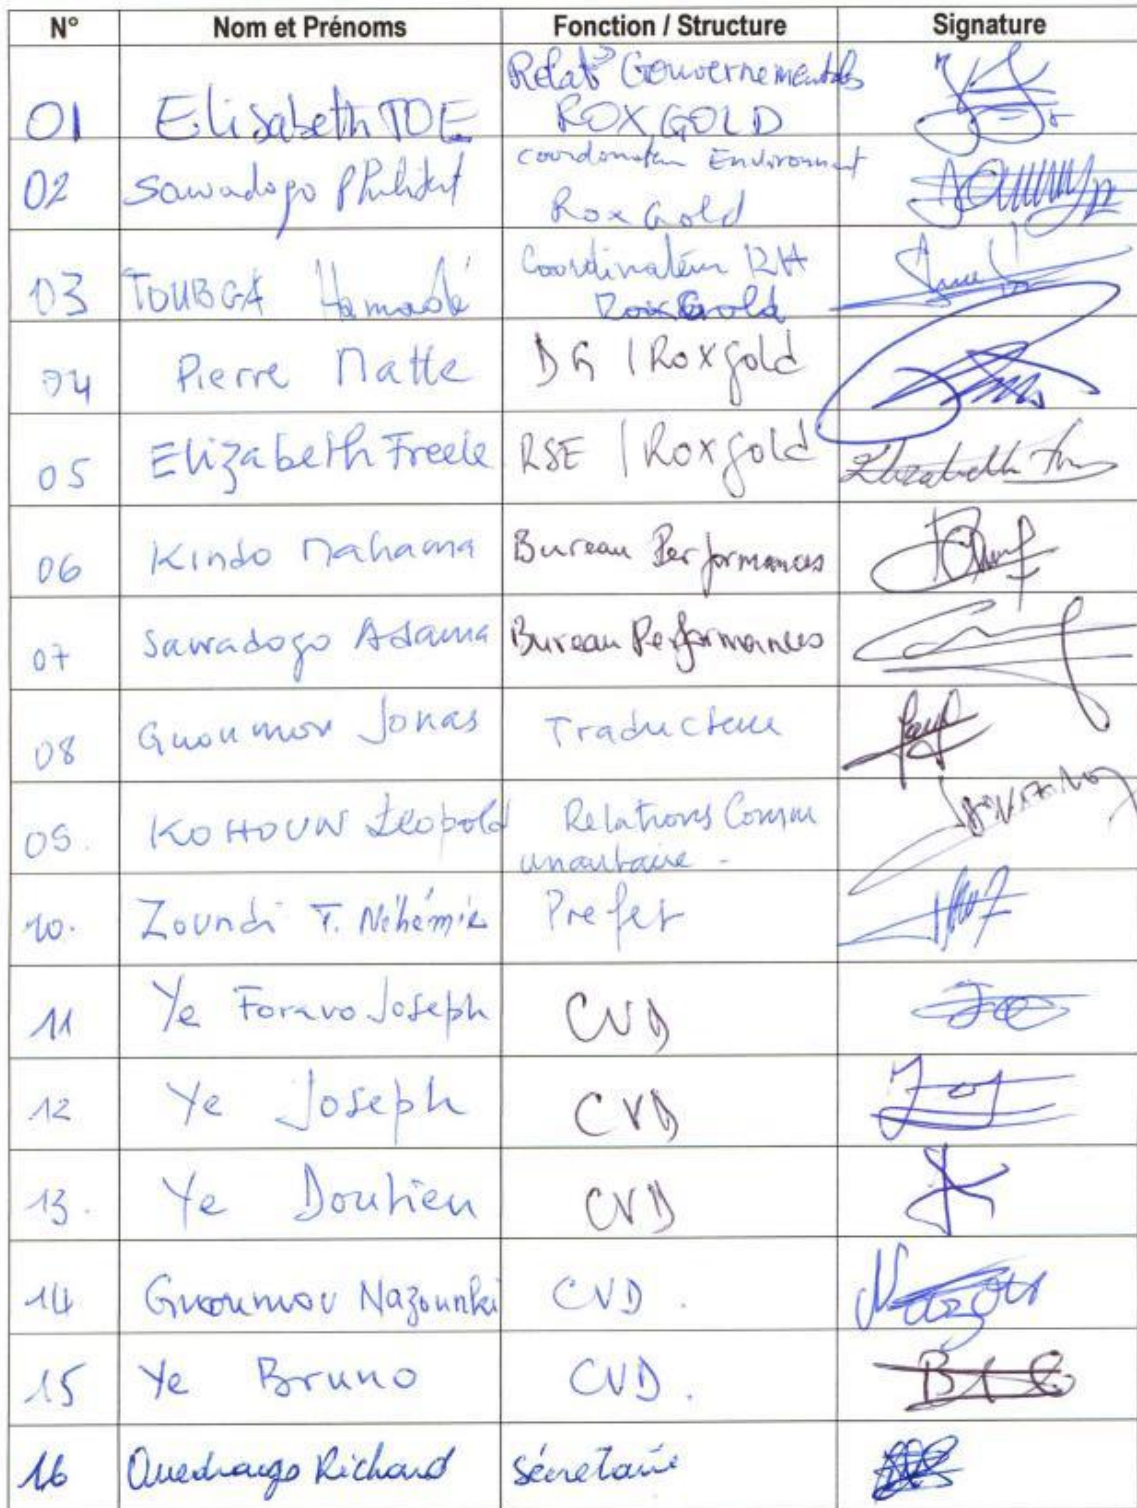 N° Nom et Prénoms Fonction / Structure Signature
01 Elisabeth TOE Relat° Gouvernementales
ROXGOLD
02 Sawadogo Coordonateur Environment
RoxGold
03 TOUBGA Hamadé Coordinateur RH
RoxGold
04 Pierre Matte DG / Roxgold
05 Elizabeth Freele RSE / Roxgold Elizabeth
06 Kindo Mahama Bureau Performances
07 Sawadogo Adama Bureau Performances
08 Gnoumou Jonas Traducteur
09. KOHOUN Léopold Relations Comm
unautaire -
10. Zoundi T. Néhémie Prefet
11 Ye Foravo Joseph CVD
12 Ye Joseph CVD
13. Ye Douhien CVD
14 Gnoumou Nazounki CVD .
15 Ye Bruno CVD .
16 Ouedraogo Richard Sécretaire